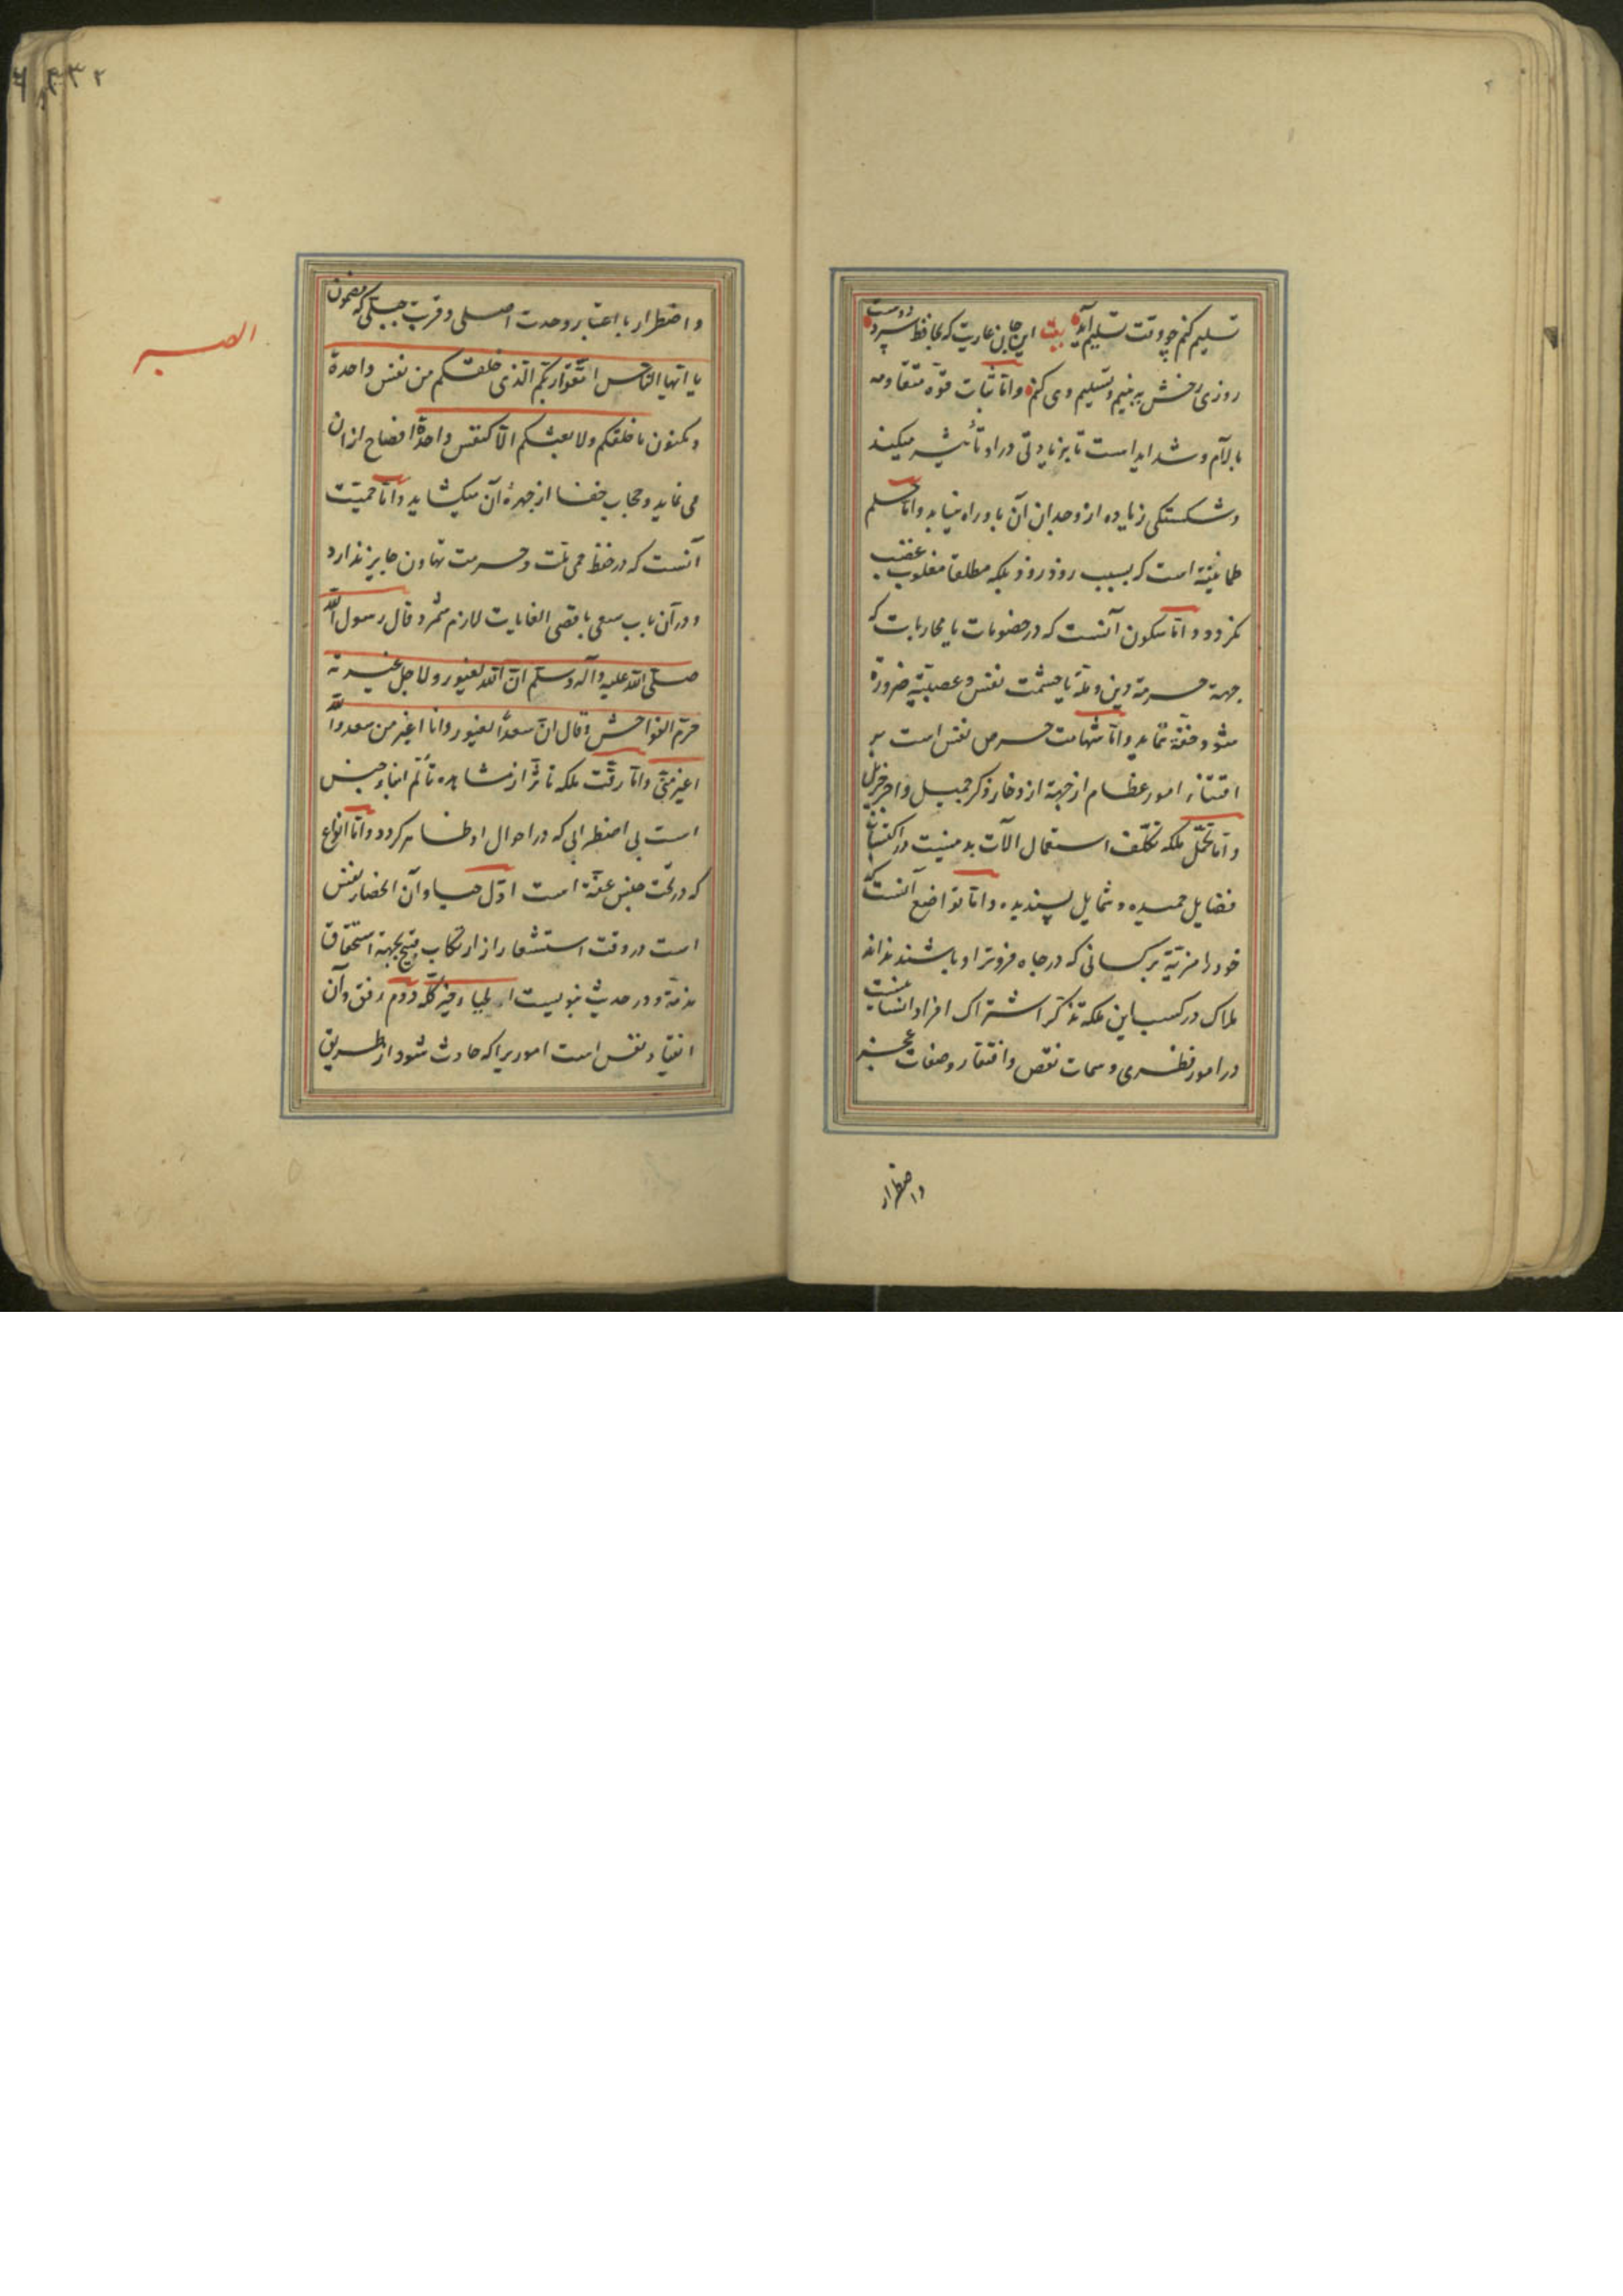 تسلیم کنم چو وقت تسلیم آید بیت این جان عاریت که بحافظ سپرد دوست
روزی رخش ببینم و تسلیم وی کنم واما ثبات قوه مقاومه
با آلام و شداید است تا بزیادتی در او تأثیر میکند
و شکستکی زیاده از وجدان آن باو راه نیابد واما حلم
طمانینة است که بسبب روذ روذ بلکه مطلقا مغلوب غضب
نکردد و اما سکون آنست که در خصومات یا محاربات که
بجهة حرمة دین و ملة یا حشمت نفس و عصبیة ضرورة
شود خفة ننماید واما شهامت حرص نفس است بر
اقتناء امور عظام از جهة ازدخار ذکر جمیل و اجر جزیل
واما تحمل ملکه تکلف استعمال آلات بدنیست در اکتساب
فضایل حمیده و شمایل پسندیده واما تواضع آنست که
خود را مزیة بر کسانی که در جاه فروتر او باشند نداند
ملاک در کسب این ملکه تذکر اشتراک افراد انسانیست
در امور فطری و سمات نقص وافتقار وصفات عجز
واضطرار
۳۳۲
الصبر
واضطرار باعتبار وحدت اصلی و قرب جبلی که مضمون
یا ایها الناس اتقوا ربکم الذی خلقکم من نفس واحدة
و مکنون ما خلقکم ولا بعثکم الا کنفس واحدة افصاح از آن
می نماید و حجاب خفا از چهرۀ آن میکشاید واما حمیت
آنست که در حفظ حمی ملت و حرمت تهاون جایز ندارد
و در آن باب سعی باقصی الغایات لازم شمرد قال رسول الله
صلی الله علیه وآله وسلم ان الله لغیور ولاجل غیرته
حرم الفواحش وقال ان سعدا لغیور وانا اغیر من سعد والله
اغیر منی واما رقت ملکه تاثر از مشاهده تألم ابناء جنس
است بی اضطرابی که در احوال او ظاهر کردد واما انواع
که در تحت جنس عفة است اول حیا و آن انحصار نفس
است در وقت استشعار از ارتکاب قبیح بجهة استحقاق
مذمة و در حدیث نبویست الحیاء خیر کله دوم رفق وآن
انقیاد نفس است اموریرا که حادث شود از طریق